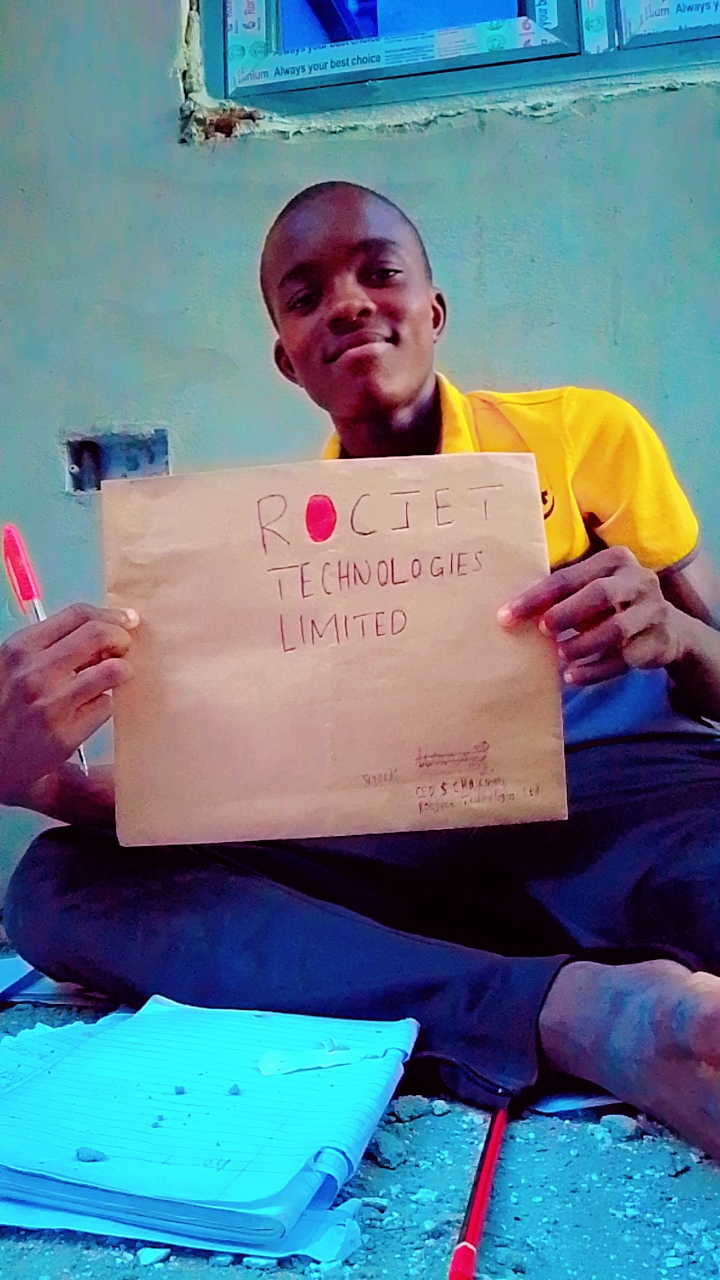 Always your best choice
inium Always your best choice
Always y
ROCJET
TECHNOLOGIES
LIMITED
Signed:
CEO & Chairman,
Technologies Ltd